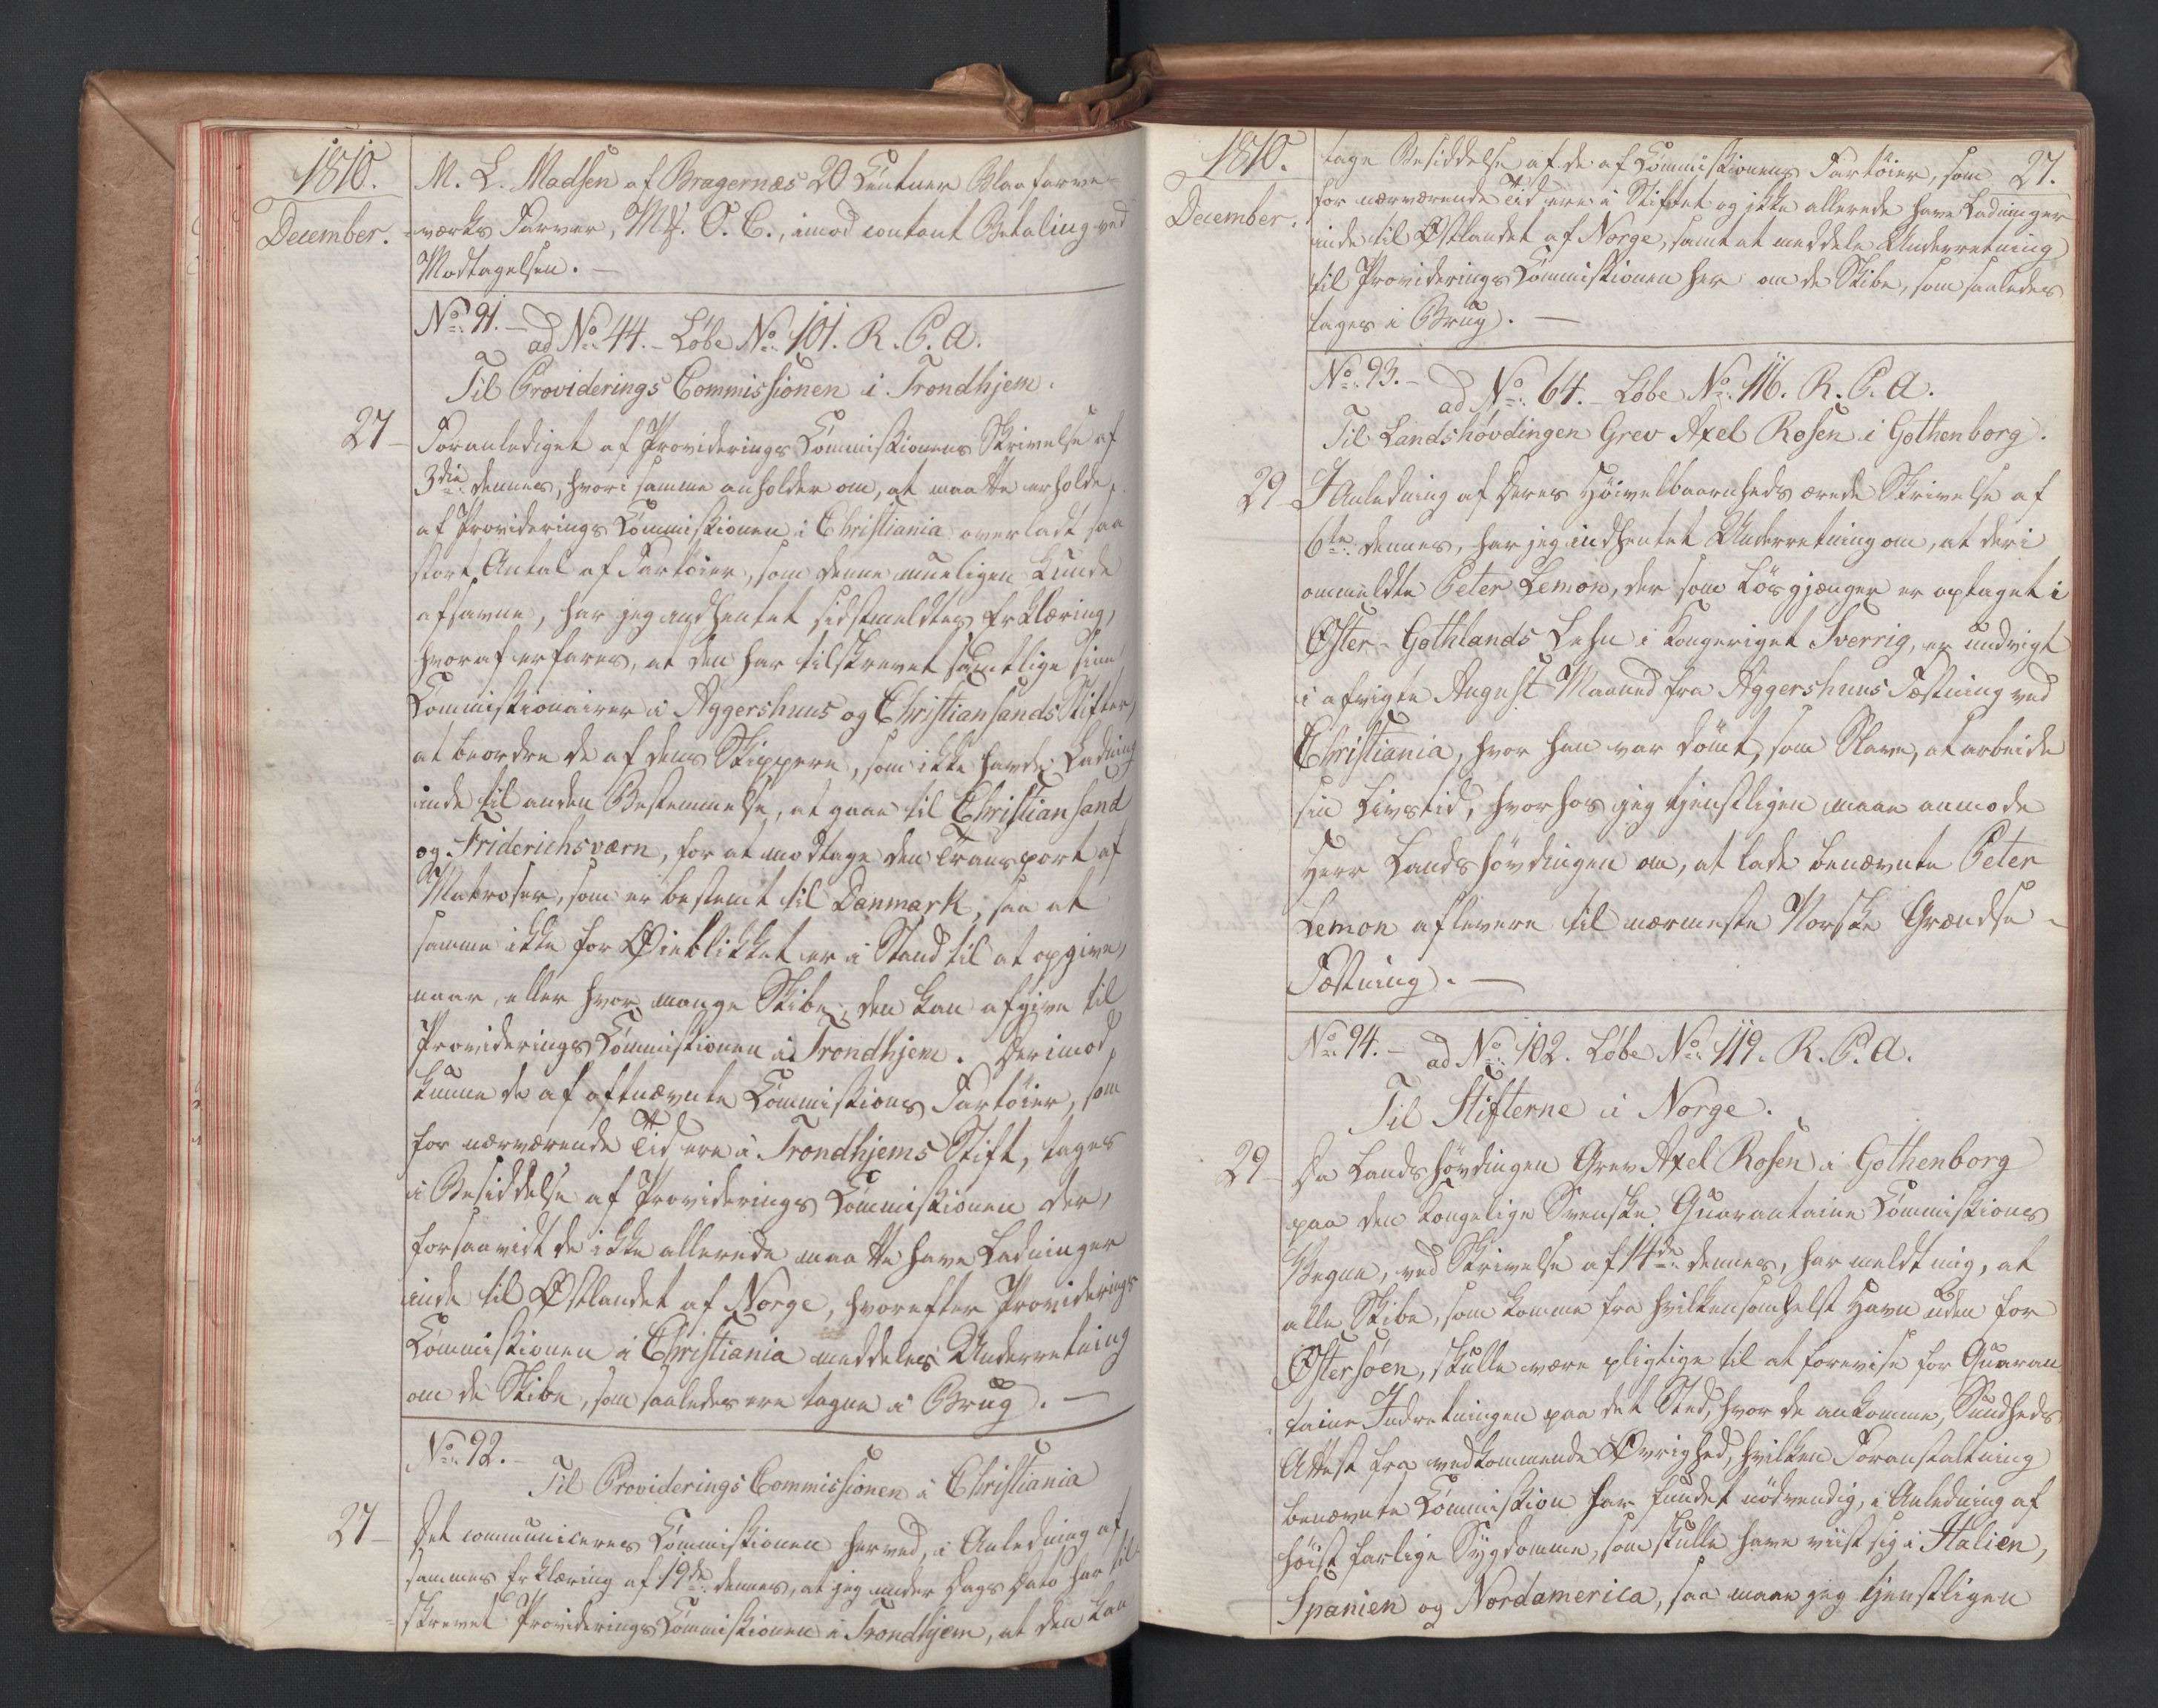 1810.
December.
M. L. Madsen af Bragernæs 20 Centner Blaafarve-
værks Farver, Mk. O. C., imod contant Betaling ved
Modtagelsen. —
No. 91. — ad No. 44. — Løbe No. 101. R. P. A.
Til Providerings Commissionen i Trondhjem.
27 — Foranlediget af Providerings Commissionens Skrivelse af
3die dennes, hvori samme anholder om, at maatte erholde
af Providerings Commissionen i Christiania overladt saa
stort Antal af Fartøier, som denne mueligen kunde
afsavne, har jeg indhentet sidstmeldtes Erklæring,
hvoraf erfares, at den har tilskrevet samtlige sine
Commissionairer i Aggershuus og Christiansands Stifter,
at beordre de af dens Skippere, som ikke havde Ladning
inde til anden Bestemmelse, at gaae til Christiansand
og Friderichsværn, for at modtage den Transport af
Matroser, som er bestemt til Danmark, saa at
samme ikke for Øieblikket er i Stand til at opgive,
naar, eller hvor mange Skibe, den kan afgive til
Providerings Commissionen i Trondhjem. Derimod
kunne de af oftnævnte Commissions Fartøier, som
for nærværende Tid ere i Trondhjems Stift, tages
i Besiddelse af Providerings Commissionen der,
forsaavidt de ikke allerede maatte have Ladninger
inde til Østlandet af Norge, hvorefter Providerings
Commissionen i Christiania meddeles Underretning
om de Skibe, som saaledes ere tagne i Brug. —
No. 92. —
Til Providerings Commissionen i Christiania
27 — Det communiceres Commissionen herved, i Anledning af
sammes Erklæring af 19de dennes, at jeg under Dags Dato har til-
skrevet Providerings Commissionen i Trondhjem, at den kan
1810.
December.
27.
tage Besiddelse af de af Commissionens Fartøier, som
for nærværende Tid ere i Stiftet og ikke allerede have Ladninger
inde til Østlandet af Norge, samt at meddele Underretning
til Providerings Commissionen her om de Skibe, som saaledes
tages i Brug. —
No. 93. — ad No. 64. — Løbe No. 116. R. P. A.
Til Landshøvdingen Grev Axel Rosen i Gothenborg.
29 — I Anledning af Deres Høivelbaarnheds ærede Skrivelse af
6te dennes, har jeg indhentet Underretning om, at deri
ommeldte Peter Lemon, der som Løsgjænger er optaget i
Øster-Gothlands Lehn i Kongeriget Sverrig, er undvigt
i afvigte August Maaned fra Aggershuus Fæstning ved
Christiania, hvor han var dömt, som Slave, at arbeide
sin Livstid, hvorhos jeg tjenstligen maae anmode
Herr Landshövdingen om, at lade benævnte Peter
Lemon aflevere til nærmeste Norske Grændse-
Fæstning. —
No. 94. — ad No. 102. Løbe No. 119. R. P. A.
Til Stifterne i Norge.
29 — Da Landshövdingen Grev Axel Rosen i Gothenborg
paa den Kongelige Svenske Quarantaine Commissions
Vegne, ved Skrivelse af 14de dennes, har meldt mig, at
alle Skibe, som komme fra hvilkensomhelst Havn uden for
Østersöen, skulle være pligtige til at forevise for Quaran-
taine Indretningen paa det Sted, hvor de ankomme, Sundheds
Attest fra vedkommende Øvrighed, hvilken Foranstaltning
benævnte Commission har fundet nödvendig, i Anledning af
höist farlige Sygdomme, som skulle have viist sig i Italien,
Spanien og Nordamerica, saa maae jeg tjenstligen